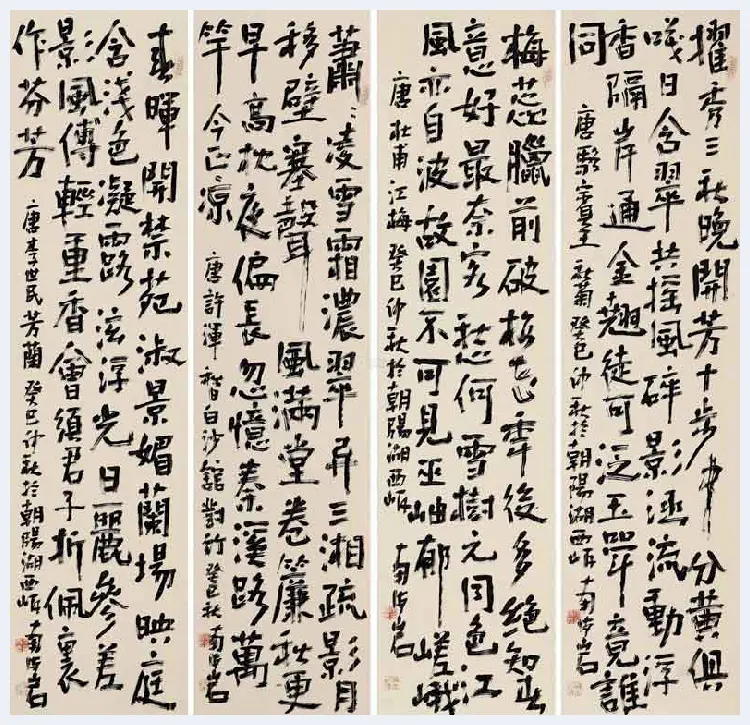 擢秀三秋晚開芳十步中分黃俱
咲日含翠共搖風碎影涵流動浮
香隔岸通金翹徒可泛玉斝竟誰
同
唐駱賓王秋菊癸巳仲秋於朝陽湖西岸
梅蕊臘前破梅花年後多絕知春
意好最奈客愁何雪樹元同色江
風亦自波故園不可見巫岫郁嵯峨
唐杜甫江梅癸巳仲秋於朝陽湖西岸
蕭蕭凌雪霜濃翠異三湘疏影月
移壁寒聲風滿堂卷簾秋更
早高枕夜偏長忽憶秦溪路萬
竿今正涼
唐許渾秋日白沙館對竹癸巳秋
春暉開禁苑淑景媚蘭場映庭
含淺色凝露泫浮光日麗參差
影風傳輕重香會須君子折佩裏
作芬芳
唐李世民芳蘭癸巳仲秋於朝陽湖西岸